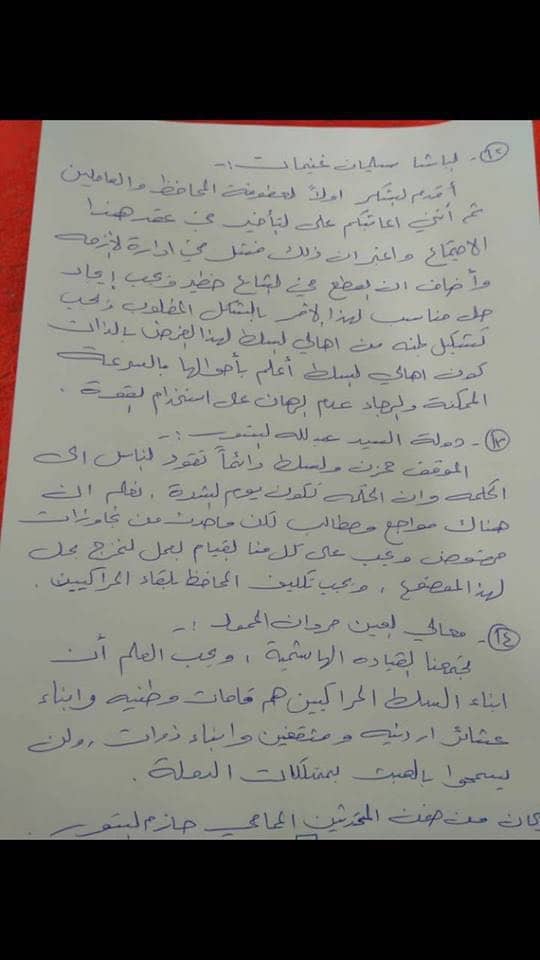 ١٢- الباشا سليمان غنيمات :-
أقدم الشكر اولاً لعطوفة المحافظ والعاملين
ثم أنني اعاتبكم على التأخير في عقد هذا
الاجتماع واعتبر ان ذلك فشل في ادارة الازمه
وأضاف ان القطع في الشارع خطير ويجب إيجاد
حل مناسب لهذا الامر بالشكل المطلوب ويجب
تشكيل لجنه من اهالي السلط لهذا الغرض بالذات
كون اهالي السلط أعلم بأحوالها بالسرعة
الممكنة والرجاء عدم الرهان على استخدام القوة .
١٣- دولة السيد عبد الله النسور :-
الموقف حزن والسلط دائماً تقود الناس الى
الحكمه وان الحكمه تكون يوم الشدة , نعلم ان
هناك مواجع ومطالب لكن ما حدث من تجاوزات
مرفوض ويجب على كل منا القيام بعمل لنخرج بحل
لهذا الموضوع , ويجب تكليف المحافظ بلقاء الحراكيين .
١٤- معالي العين مروان الحمود :-
تجمعنا القياده الهاشمية , ويجب العلم أن
ابناء السلط الحراكيين هم قامات وطنيه وابناء
عشائر اردنيه ومثقفين وابناء ذوات , ولن
يسمحوا بالعبث بممتلكات الدولة .
كان من ضمن المتحدثين المحامي حازم النسور .